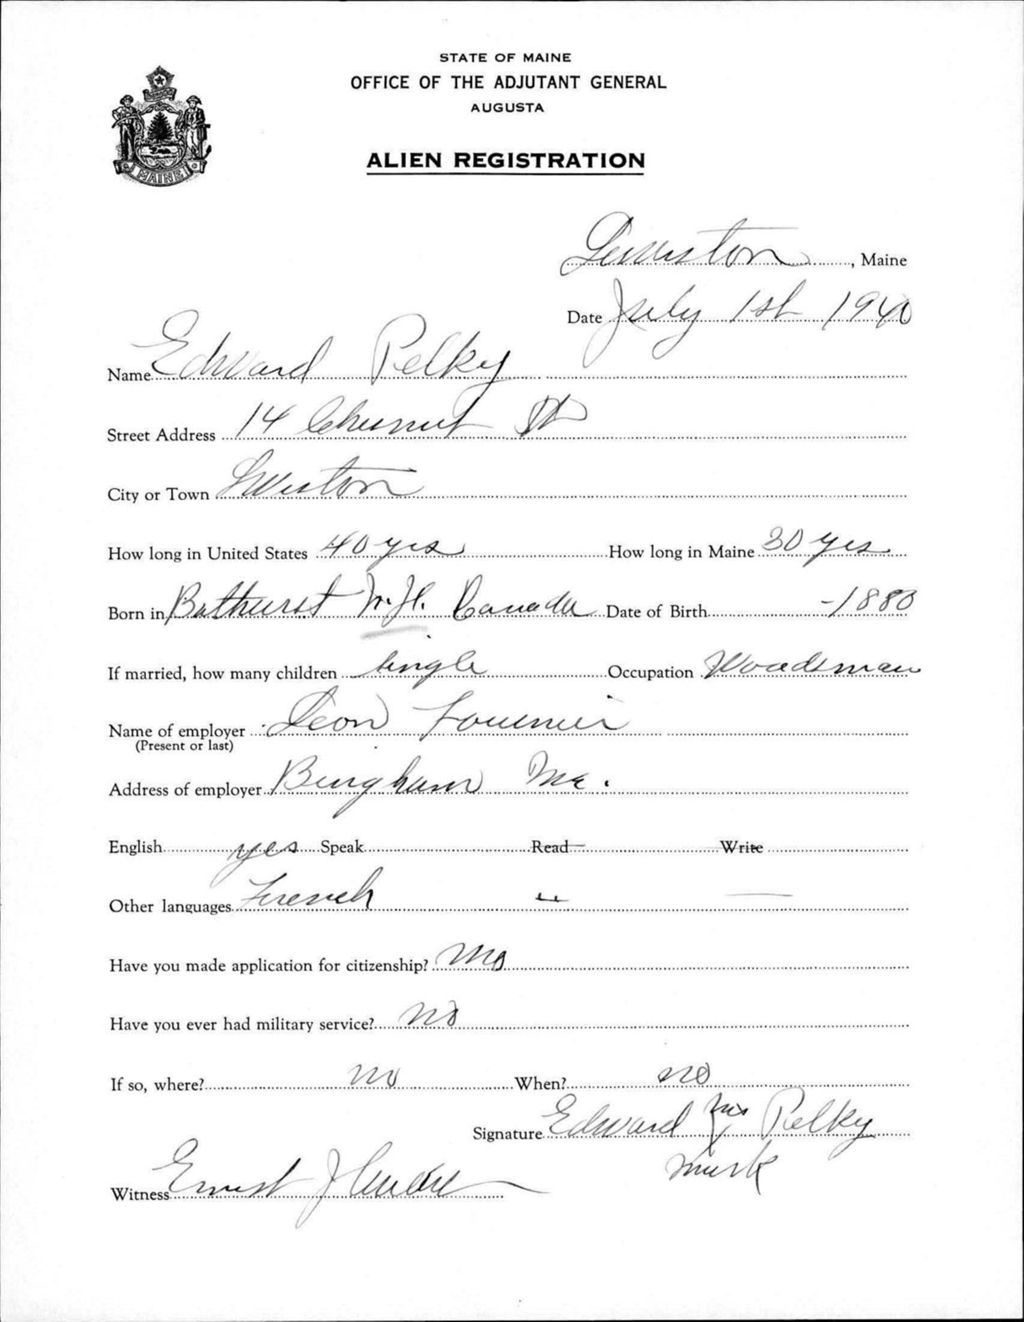 STATE OF MAINE
OFFICE OF THE ADJUTANT GENERAL
AUGUSTA
ALIEN REGISTRATION
MAINE
Lewiston, Maine
Date July 1st 1940
Name Edward Pelky
Street Address 14 Chesnut St
City or Town Lewiston
How long in United States 40 yrs How long in Maine 30 yrs
Born in Bathurst N.H. Canada Date of Birth -1880
If married, how many children Single Occupation Woodsman
Name of employer Leon Fournier
(Present or last)
Address of employer Bingham Me.
English yes Speak Read Write
Other languages French " —
Have you made application for citizenship? No
Have you ever had military service? no
If so, where? no When? no
Signature Edward his x Pelky
mark
Witness Ernest